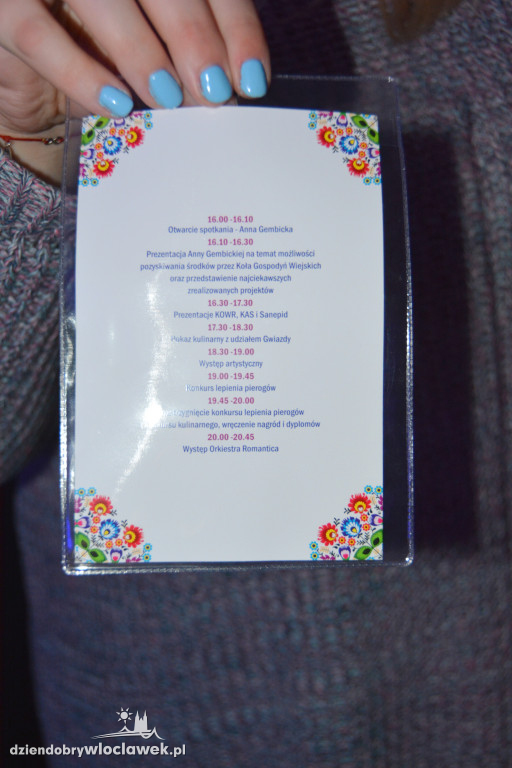 16.00 -16.10
Otwarcie spotkania - Anna Gembicka
16.10 -16.30
Prezentacja Anny Gembickiej na temat możliwości
pozyskiwania środków przez Koła Gospodyń Wiejskich
oraz przedstawienie najciekawszych
zrealizowanych projektów
16.30 -17.30
Prezentacje KOWR, KAS i Sanepid
17.30 -18.30
Pokaz kulinarny z udziałem Gwiazdy
18.30 -19.00
Występ artystyczny
19.00 -19.45
Konkurs lepienia pierogów
19.45 -20.00
konkursu lepienia pierogów
kulinarnego, wręczenie nagród i dyplomów
20.00 -20.45
Występ Orkiestra Romantica
dziendobrywłocławek.pl